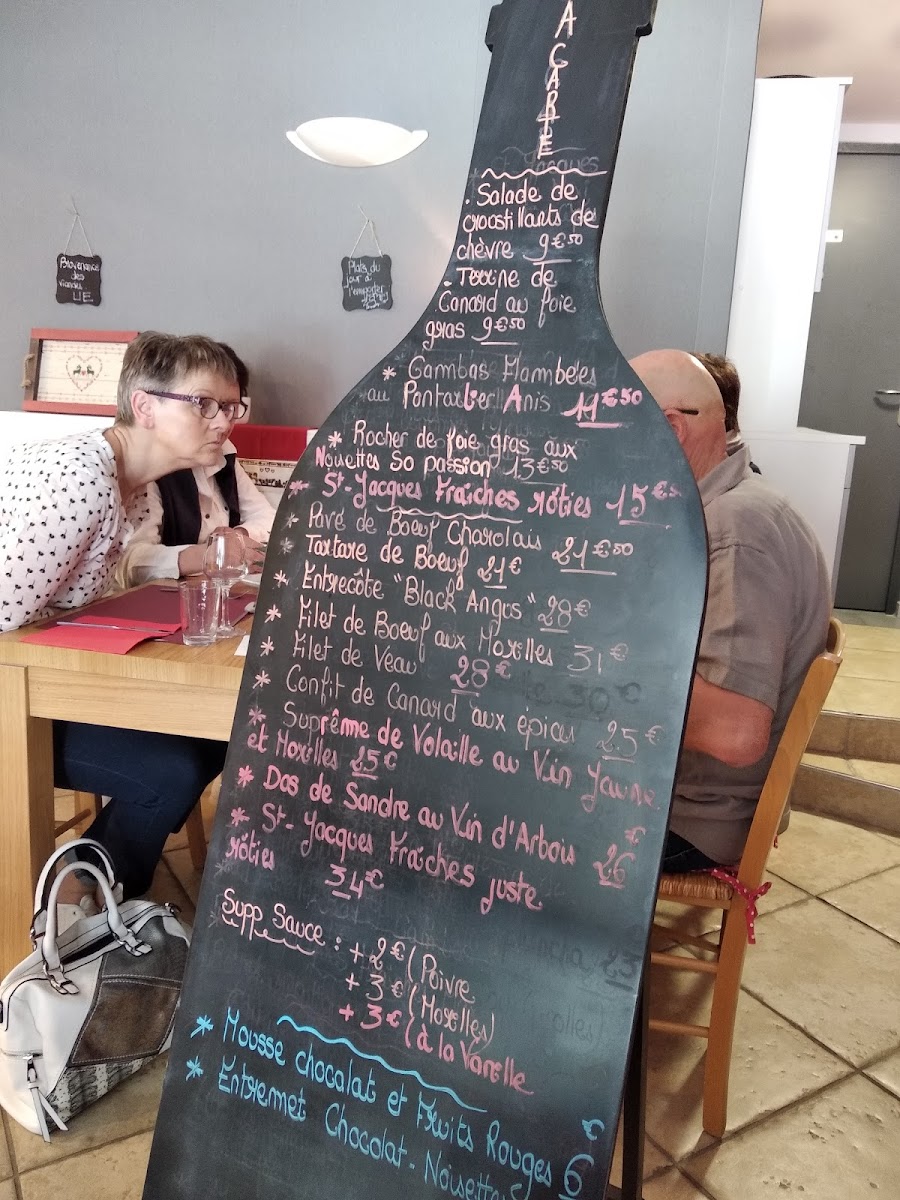 A CARTE
. Salade de
croostillants de
chèvre 9€50
. Terrine de
Canard au foie
gras 9€50
Provenance
des
viandes
UE
Plats du
jour à
l'emporter
* Gambas Flambées
au Pontarlier Anis 14€50
* Rocher de foie gras aux
Noisettes So passion 13€50
* St-Jacques Fraîches rôties 15€
* Pavé de Boeuf Charolais 21€50
* Tartare de Boeuf 21€
* Entrecôte "Black Angus" 28€
* Filet de Boeuf aux Morilles 31€
* Filet de Veau 28€
* Confit de Canard aux épices 25€
* Suprême de Volaille au Vin Jaune
et Morilles 25€
* Dos de Sandre au Vin d'Arbois 26€
* St-Jacques Fraîches juste
rôties 34€
Supp Sauce : + 2€ (Poivre
+ 3€ (Morilles)
+ 3€ (à la Vanille
* Mousse chocolat et Fruits Rouges 6€
* Entremet Chocolat-Noisettes